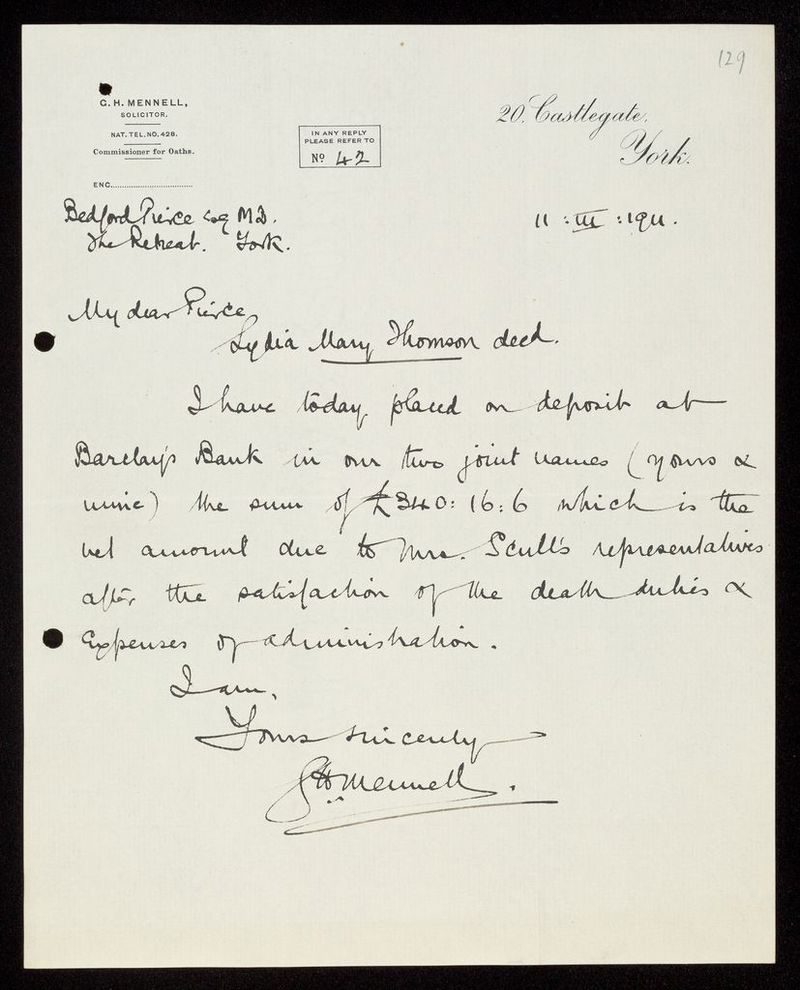 129
G. H. MENNELL,
SOLICITOR.
NAT. TEL. NO. 428.
Commissioner for Oaths.
ENC....................................
IN ANY REPLY
PLEASE REFER TO
No 42
20, Castlegate,
York.
Bedford Pierce Esq MD.
The Retreat. York.
11 : III : 1911.
My dear Pierce
Lydia Mary Thomson decd.
I have today placed on deposit at
Barclay's Bank in our two joint names (yours &
mine) the sum of £340: 16: 6 which is the
net amount due to Mrs. Scull's representatives
after the satisfaction of the death duties &
Expenses of administration.
I am,
Yours sincerely
GH Mennell.